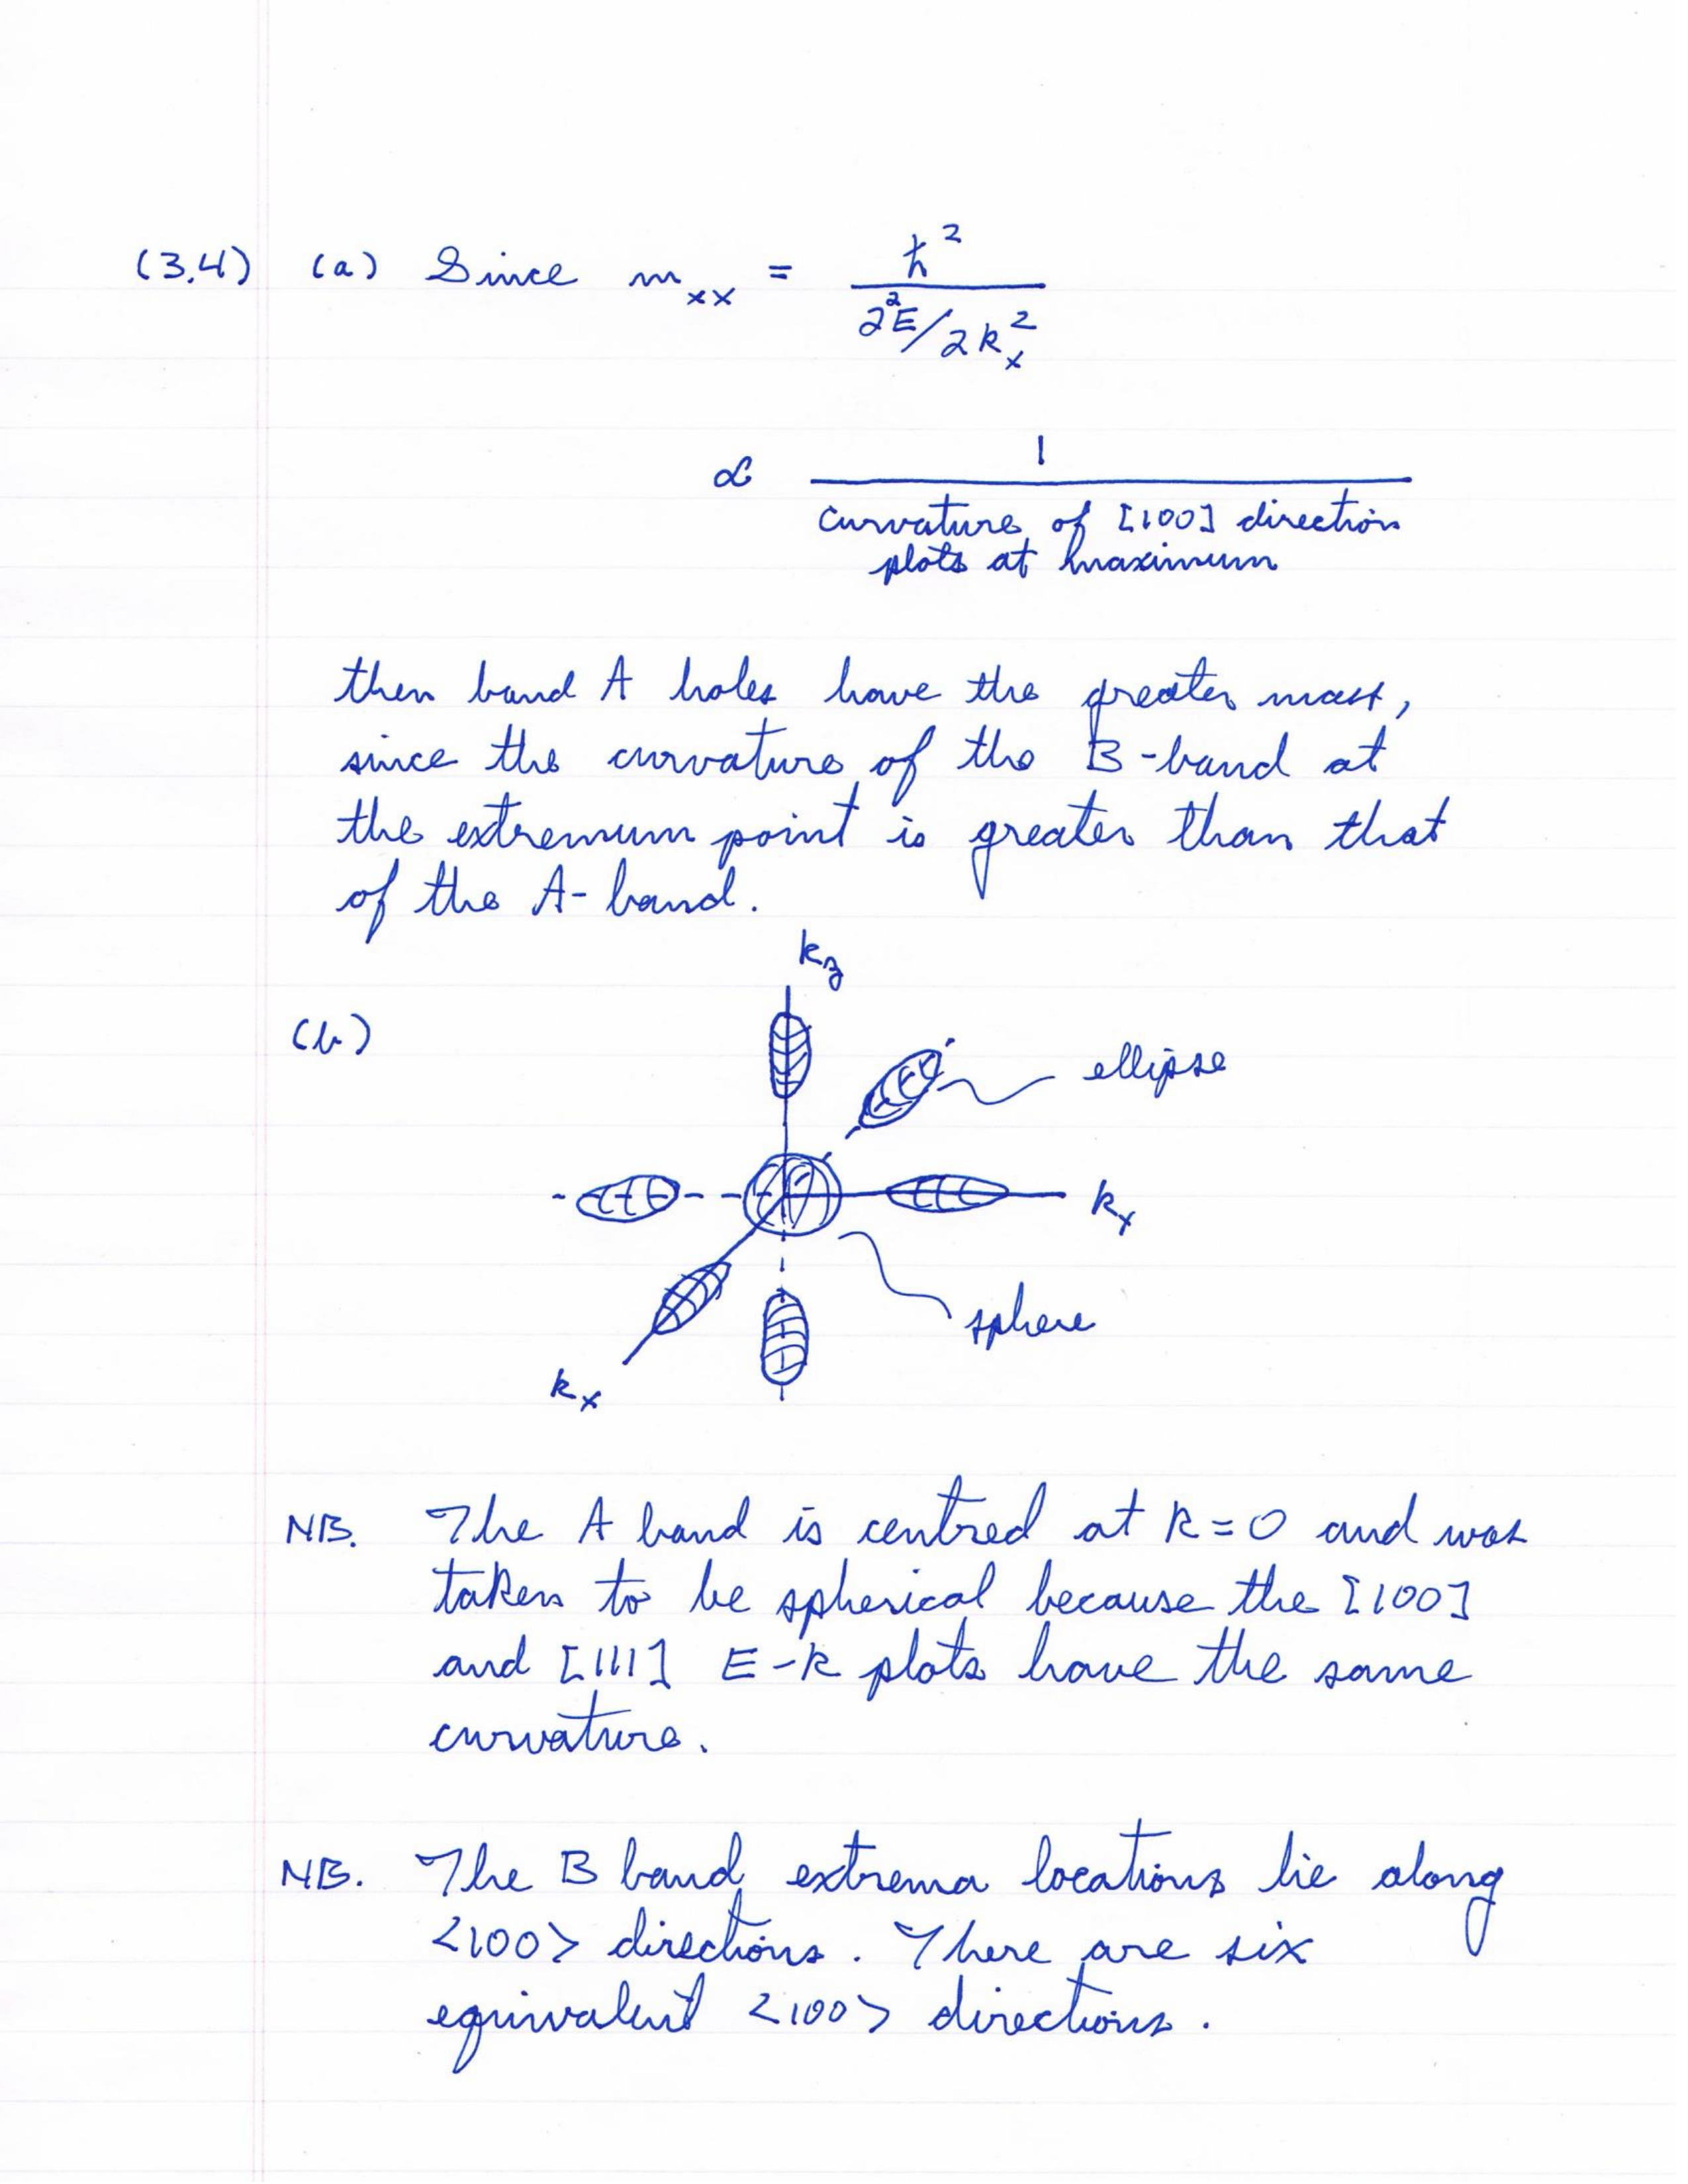 (3.4) (a) Since m_xx = ħ² / (∂²E/∂k_x²)
∝ 1 / (curvature of [100] direction
plots at maximum)
then band A holes have the greater mass,
since the curvature of the B-band at
the extremum point is greater than that
of the A-band.
k_z
(b)
ellipse
k_y
sphere
k_x
NB. The A band is centred at k=0 and was
taken to be spherical because the [100]
and [111] E-k plots have the same
curvature.
NB. The B band extrema locations lie along
<100> directions. There are six
equivalent <100> directions.